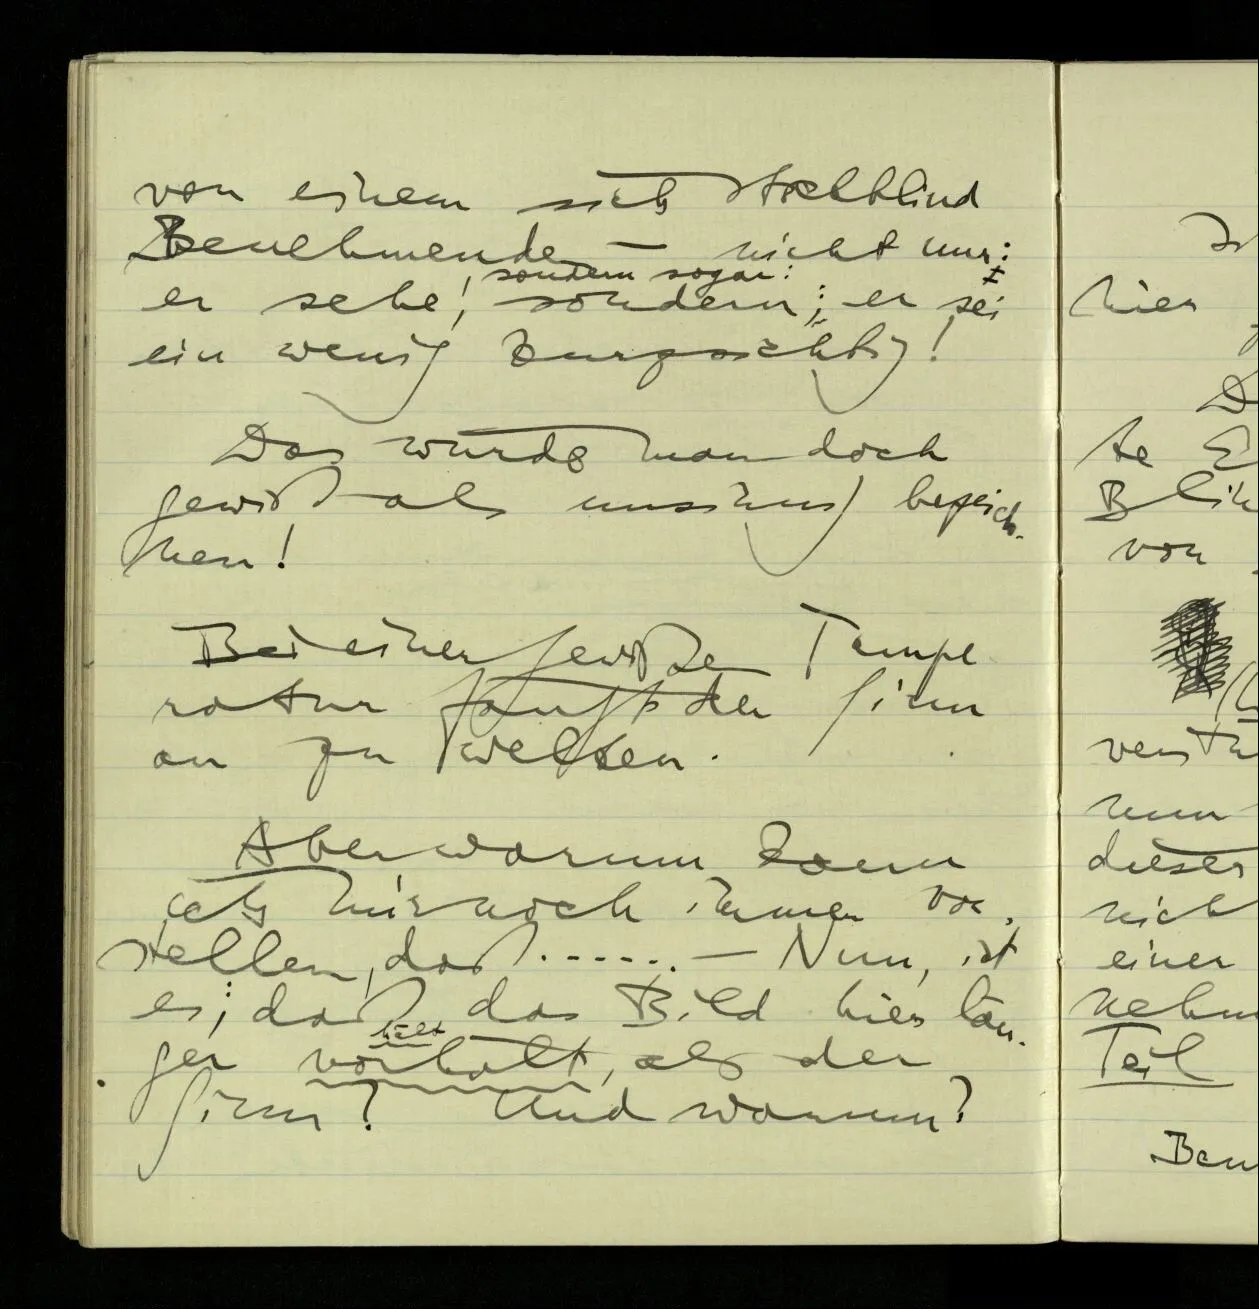 von einem sich stockblind
Benehmende — nicht nur:
sondern sogar:
er sehe, sondern; er sei
ein wenig kurzsichtig!
Das würde man doch
gewiß als unsinnig bezeich-
nen!
Bei einer gewißen Tempe
ratur fängt der Sinn
an zu welken.
Aber warum kann
ich mir noch immer vor-
stellen, daß ...... — Nun, ist
es; daß das Bild hier län-
hält
ger vorhält, als der
Sinn? Und warum?
hier
D
te
Blin
von
verst
nun
dieser
nich
einer
nehm
Teil
Ben